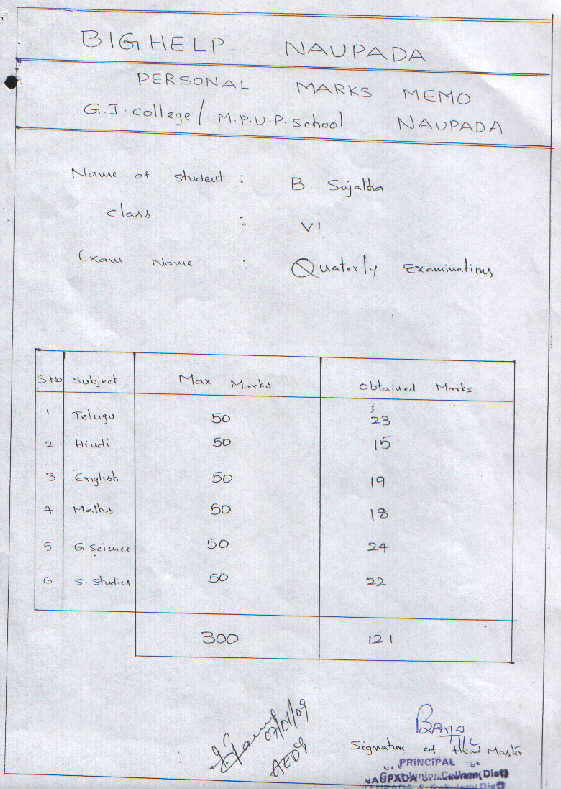 BIG HELP NAUPADA
PERSONAL MARKS MEMO
G.J. college / M.P.U.P. School NAUPADA
Name of student : B Sujatha
Class : VI
Exam Name : Quaterly Examinations
S.No Subject Max Marks Obtained Marks
1 Telugu 50 23
2 Hindi 50 15
3 English 50 19
4 Maths 50 18
5 G. Science 50 24
6 S. Studies 50 22
300 121
Signature of Head Master
PRINCIPAL